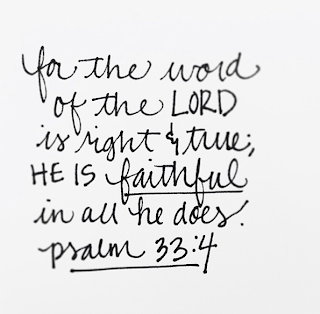 for the word
of the LORD
is right & true;
HE IS faithful
in all he does.
psalm 33:4